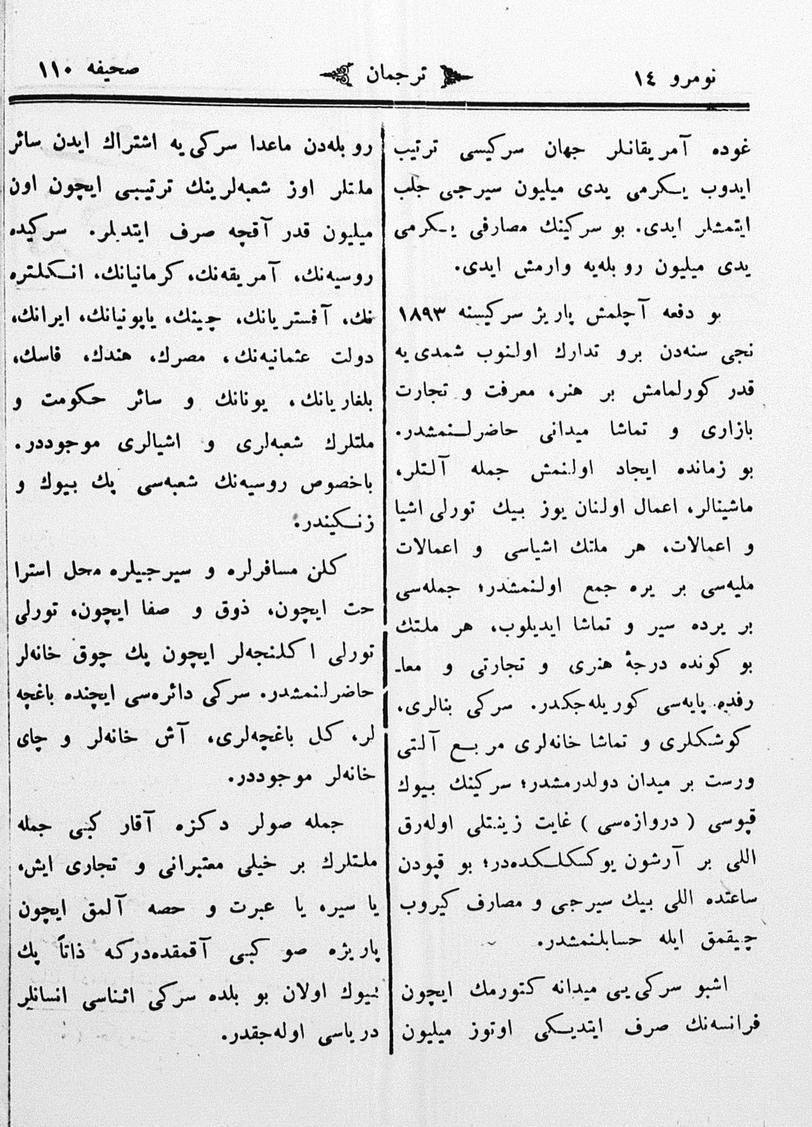 نومرو ١٤
ترجمان
صحیفه ١١٠
غوده آمریقانلر جهان سرکیسی ترتیب
ایدوب یکرمی یدی میلیون سیرجی جلب
ایتمشلر ایدی. بو سرکینك مصارفی یکرمی
یدی میلیون روبله‌یه وارمش ایدی.
بو دفعه آچلمش پاریژ سرکیسنه ١٨٩٣
نجی سنه‌دن برو تدارك اولنوب شمدی‌یه
قدر کورلمامش بر هنر، معرفت و تجارت
بازاری و تماشا میدانی حاضرلنمشدر.
بو زمانده ایجاد اولنمش جمله آلتلر،
ماشینالر، اعمال اولنان یوز بیك تورلی اشیا
و اعمالات، هر ملتك اشیاسی و اعمالات
ملیه‌سی بر یره جمع اولنمشدر؛ جمله‌سی
بر یرده سیر و تماشا ایدیلوب، هر ملتك
بو کونده درجهٔ هنری و تجارتی و معا۔
رفده پایه‌سی کوریله‌جکدر. سرکی بنالری،
کوشکلری و تماشا خانه‌لری مربع آلتی
ورست بر میدان دولدرمشدر؛ سرکینك بیوك
قپوسی ( دروازه‌سی ) غایت زینتلی اوله‌رق
اللی بر آرشون یوکسکلکده‌در؛ بو قپودن
ساعتده اللی بیك سیرجی و مصارف کیروب
چیقمق ایله حسابلنمشدر.
اشبو سرکی‌یی میدانه کتورمك ایچون
فرانسه‌نك صرف ایتدیکی اوتوز میلیون
روبله‌دن ماعدا سرکی‌یه اشتراك ایدن سائر
ملتلر اوز شعبه‌لرینك ترتیبی ایچون اون
میلیون قدر آقچه صرف ایتدیلر. سرکیده
روسیه‌نك، آمریقه‌نك، کرمانیانك، انکلتره
نك، آفستریانك، چینك، یاپونیانك، ایرانك،
دولت عثمانیه‌نك، مصرك، هندك، فاسك،
بلغاریانك، یونانك و سائر حکومت و
ملتلرك شعبه‌لری و اشیالری موجوددر.
باخصوص روسیه‌نك شعبه‌سی پك بیوك و
زنکیندر.
کلن مسافرلره و سیرجیلره محل استرا
حت ایچون، ذوق و صفا ایچون، تورلی
تورلی اکلنجه‌لر ایچون پك چوق خانه‌لر
حاضرلنمشدر. سرکی دائره‌سی ایچنده باغچه
لر، کل باغچه‌لری، آش خانه‌لر و چای
خانه‌لر موجوددر.
جمله صولر دکزه آقار کبی جمله
ملتلرك بر خیلی معتبرانی و تجاری ایش،
یا سیر، یا عبرت و حصه آلمق ایچون
پاریژه صو کبی آقمقده‌درکه ذاتاً پك
بیوك اولان بو بلده سرکی اثناسی انسانلر
دریاسی اوله‌جقدر.